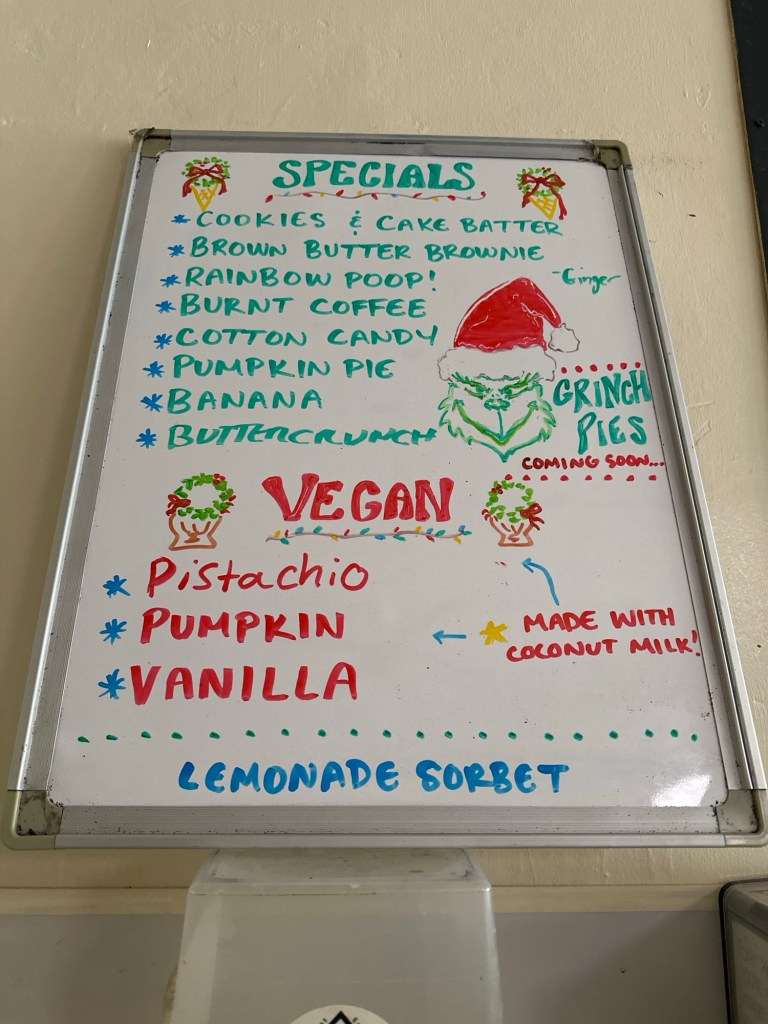 SPECIALS
* COOKIES & CAKE BATTER
* BROWN BUTTER BROWNIE
* RAINBOW POOP!
- Ginger
* BURNT COFFEE
* COTTON CANDY
* PUMPKIN PIE
* BANANA
* BUTTERCRUNCH
GRINCH
PIES
COMING SOON...
VEGAN
* Pistachio
* PUMPKIN
* VANILLA
* MADE WITH
COCONUT MILK!
LEMONADE SORBET